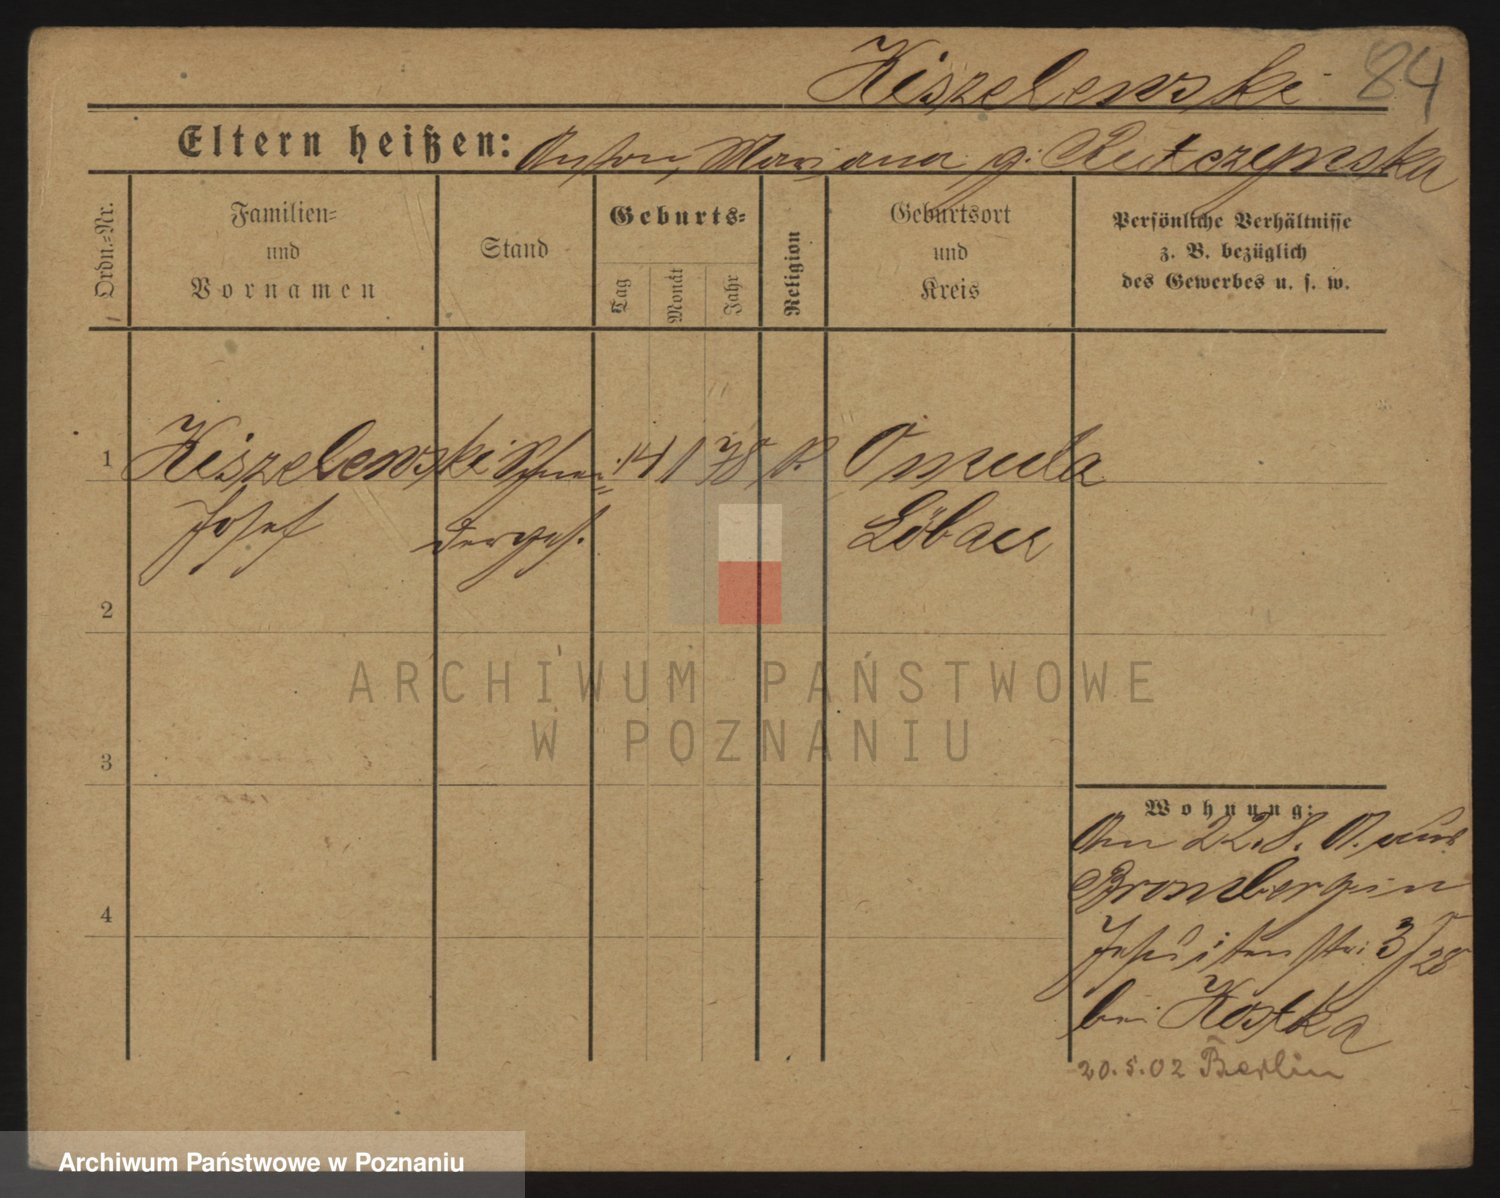 Kiszelewski 84
Eltern heißen: Anton, Mariana g: Rutczynska
Ordn.=Nr.
Familien=
und
Vornamen
Stand
Geburts=
Tag
Monat
Jahr
Religion
Geburtsort
und
Kreis
Persönliche Verhältnisse
z. B. bezüglich
des Gewerbes u. s. w.
1 Kiszelewski Schnei= 14 1 78 Omula
Josef derges. Löbau
2
ARCHIWUM PAŃSTWOWE
W POZNANIU
3
Wohnung:
Am 22.8. 01. aus
4 Bromberg in
Jesuitenstr: 3/28
bei Kostka
20.5.02 Berlin
Archiwum Państwowe w Poznaniu